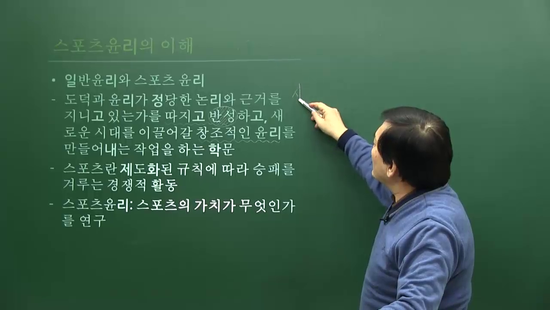 스포츠윤리의 이해
• 일반윤리와 스포츠 윤리
- 도덕과 윤리가 정당한 논리와 근거를
지니고 있는가를 따지고 반성하고, 새
로운 시대를 이끌어갈 창조적인 윤리를
만들어내는 작업을 하는 학문
- 스포츠란 제도화된 규칙에 따라 승패를
겨루는 경쟁적 활동
- 스포츠윤리: 스포츠의 가치가 무엇인가
를 연구